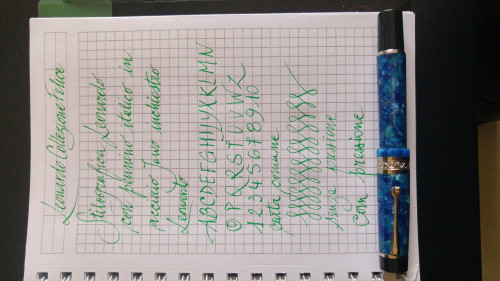 Leonardo Collezione Felice
Stilografica Leonardo
con pennino italico in
acciaio fine inchiostro
Leonardo
ABCDEFGHIJYXKLMN
OPQRSTUVWZ
12345678910
carta comune
senza pressione
con pressione